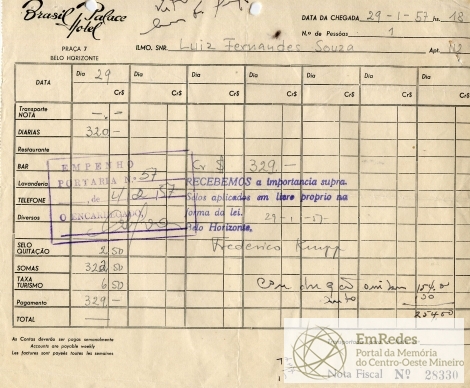 Brasil Palace
Hotel
PRAÇA 7
BELO HORIZONTE
DATA DA CHEGADA 29-1-57 hs. 18
N.º de Pessôas 1
ILMO. SNR. Luiz Fernandes Souza Apt.
DATA Dia 29 Dia Dia Dia Dia Dia Dia
Cr$ Cr$ Cr$ Cr$ Cr$ Cr$ Cr$
Transporte
NOTA -.-
DIARIAS 320 -
Restaurante
BAR Cr $ 329.-
EMPENHO
PORTARIA N.º 57
Lavanderia
RECEBEMOS a importancia supra.
TELEFONE
Selos aplicados em livro proprio na
forma da lei.
Diversos
O ENCARREGADO
29-1-57-
Belo Horizonte,
Frederico Krupp
SELO
QUITAÇÃO 2 50
SOMAS 322 50
TAXA
TURISMO 6 50
Pagamento 329 -
TOTAL
As Contas deverão ser pagas semanalmente
Accounts are payable weekly
Les factures sont payées toutes les semaines
EmRedes
Portal da Memória
do Centro-Oeste Mineiro
Nota Fiscal Nº 28330